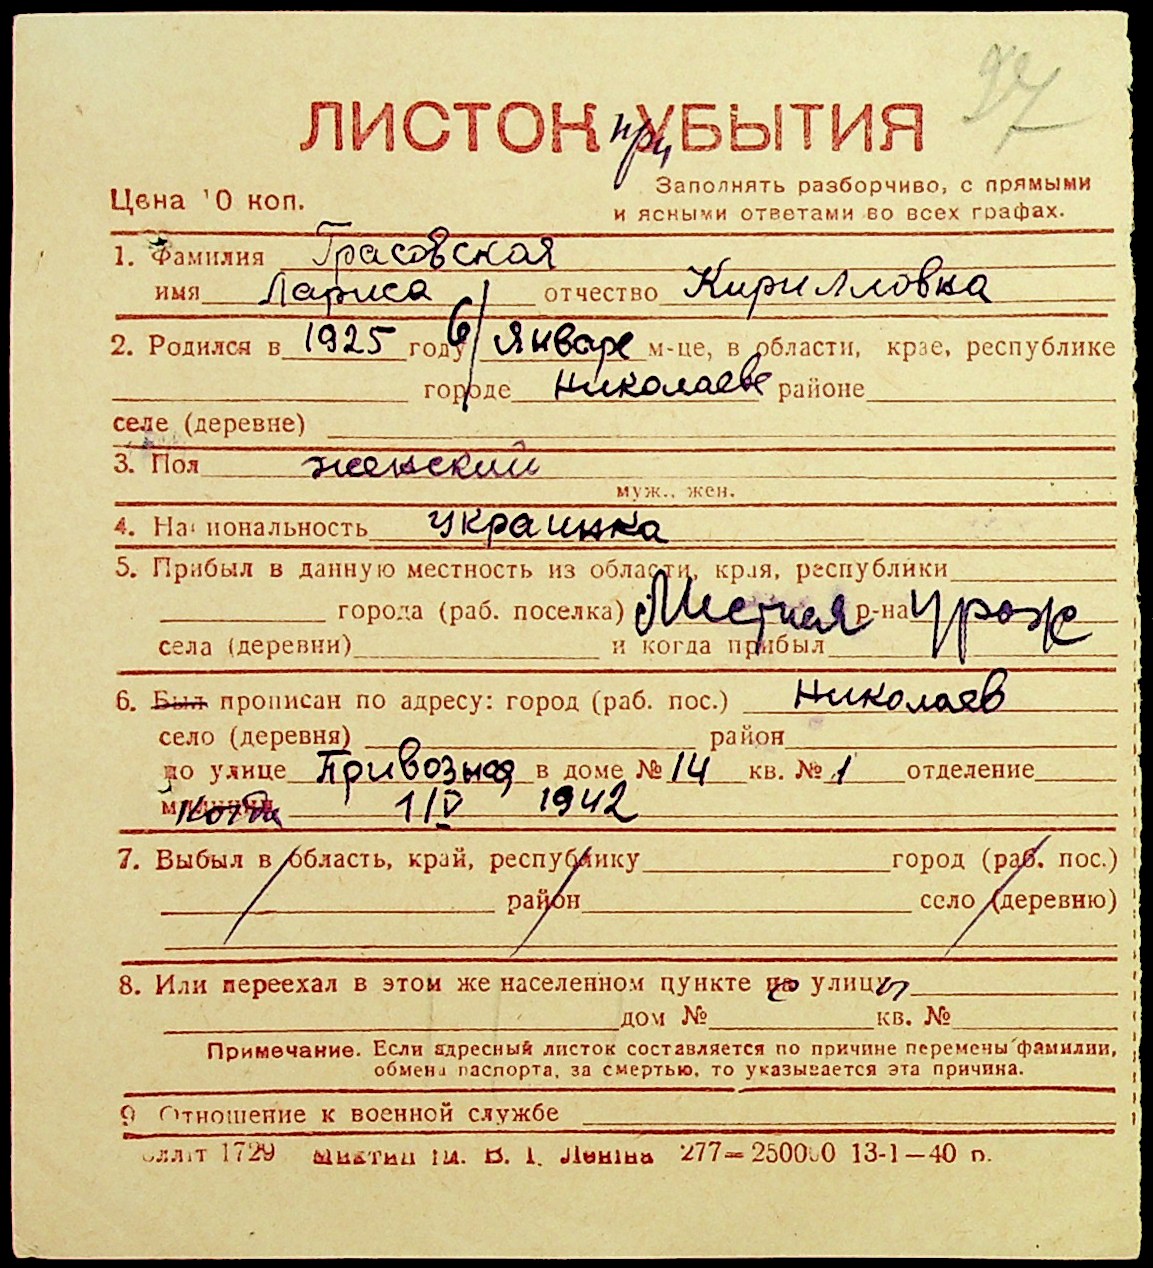 97
ЛИСТОК при УБЫТИЯ
Цена 10 коп.
Заполнять разборчиво, с прямыми
и ясными ответами во всех графах.
1. Фамилия Грасовская
имя Лариса отчество Кирилловна
2. Родился в 1925 году 6/ январе м-це, в области, крае, республике
городе Николаеве районе
селе (деревне)
3. Пол женский
муж., жен.
4. Национальность украинка
5. Прибыл в данную местность из области, края, республики
города (раб. поселка) Местная р-на Урож
села (деревни) и когда прибыл
6. Был прописан по адресу: город (раб. пос.) Николаев
село (деревня) район
по улице Привозная в доме № 14 кв. № 1 отделение
милиции Когда 1/IV 1942
7. Выбыл в область, край, республику город (раб. пос.)
район село (деревню)
8. Или переехал в этом же населенном пункте на улицы
дом № кв. №
Примечание. Если адресный листок составляется по причине перемены фамилии,
обмена паспорта, за смертью, то указывается эта причина.
9 Отношение к военной службе
1729 ім. В. І. Леніна 277—250000 13-1—40 р.